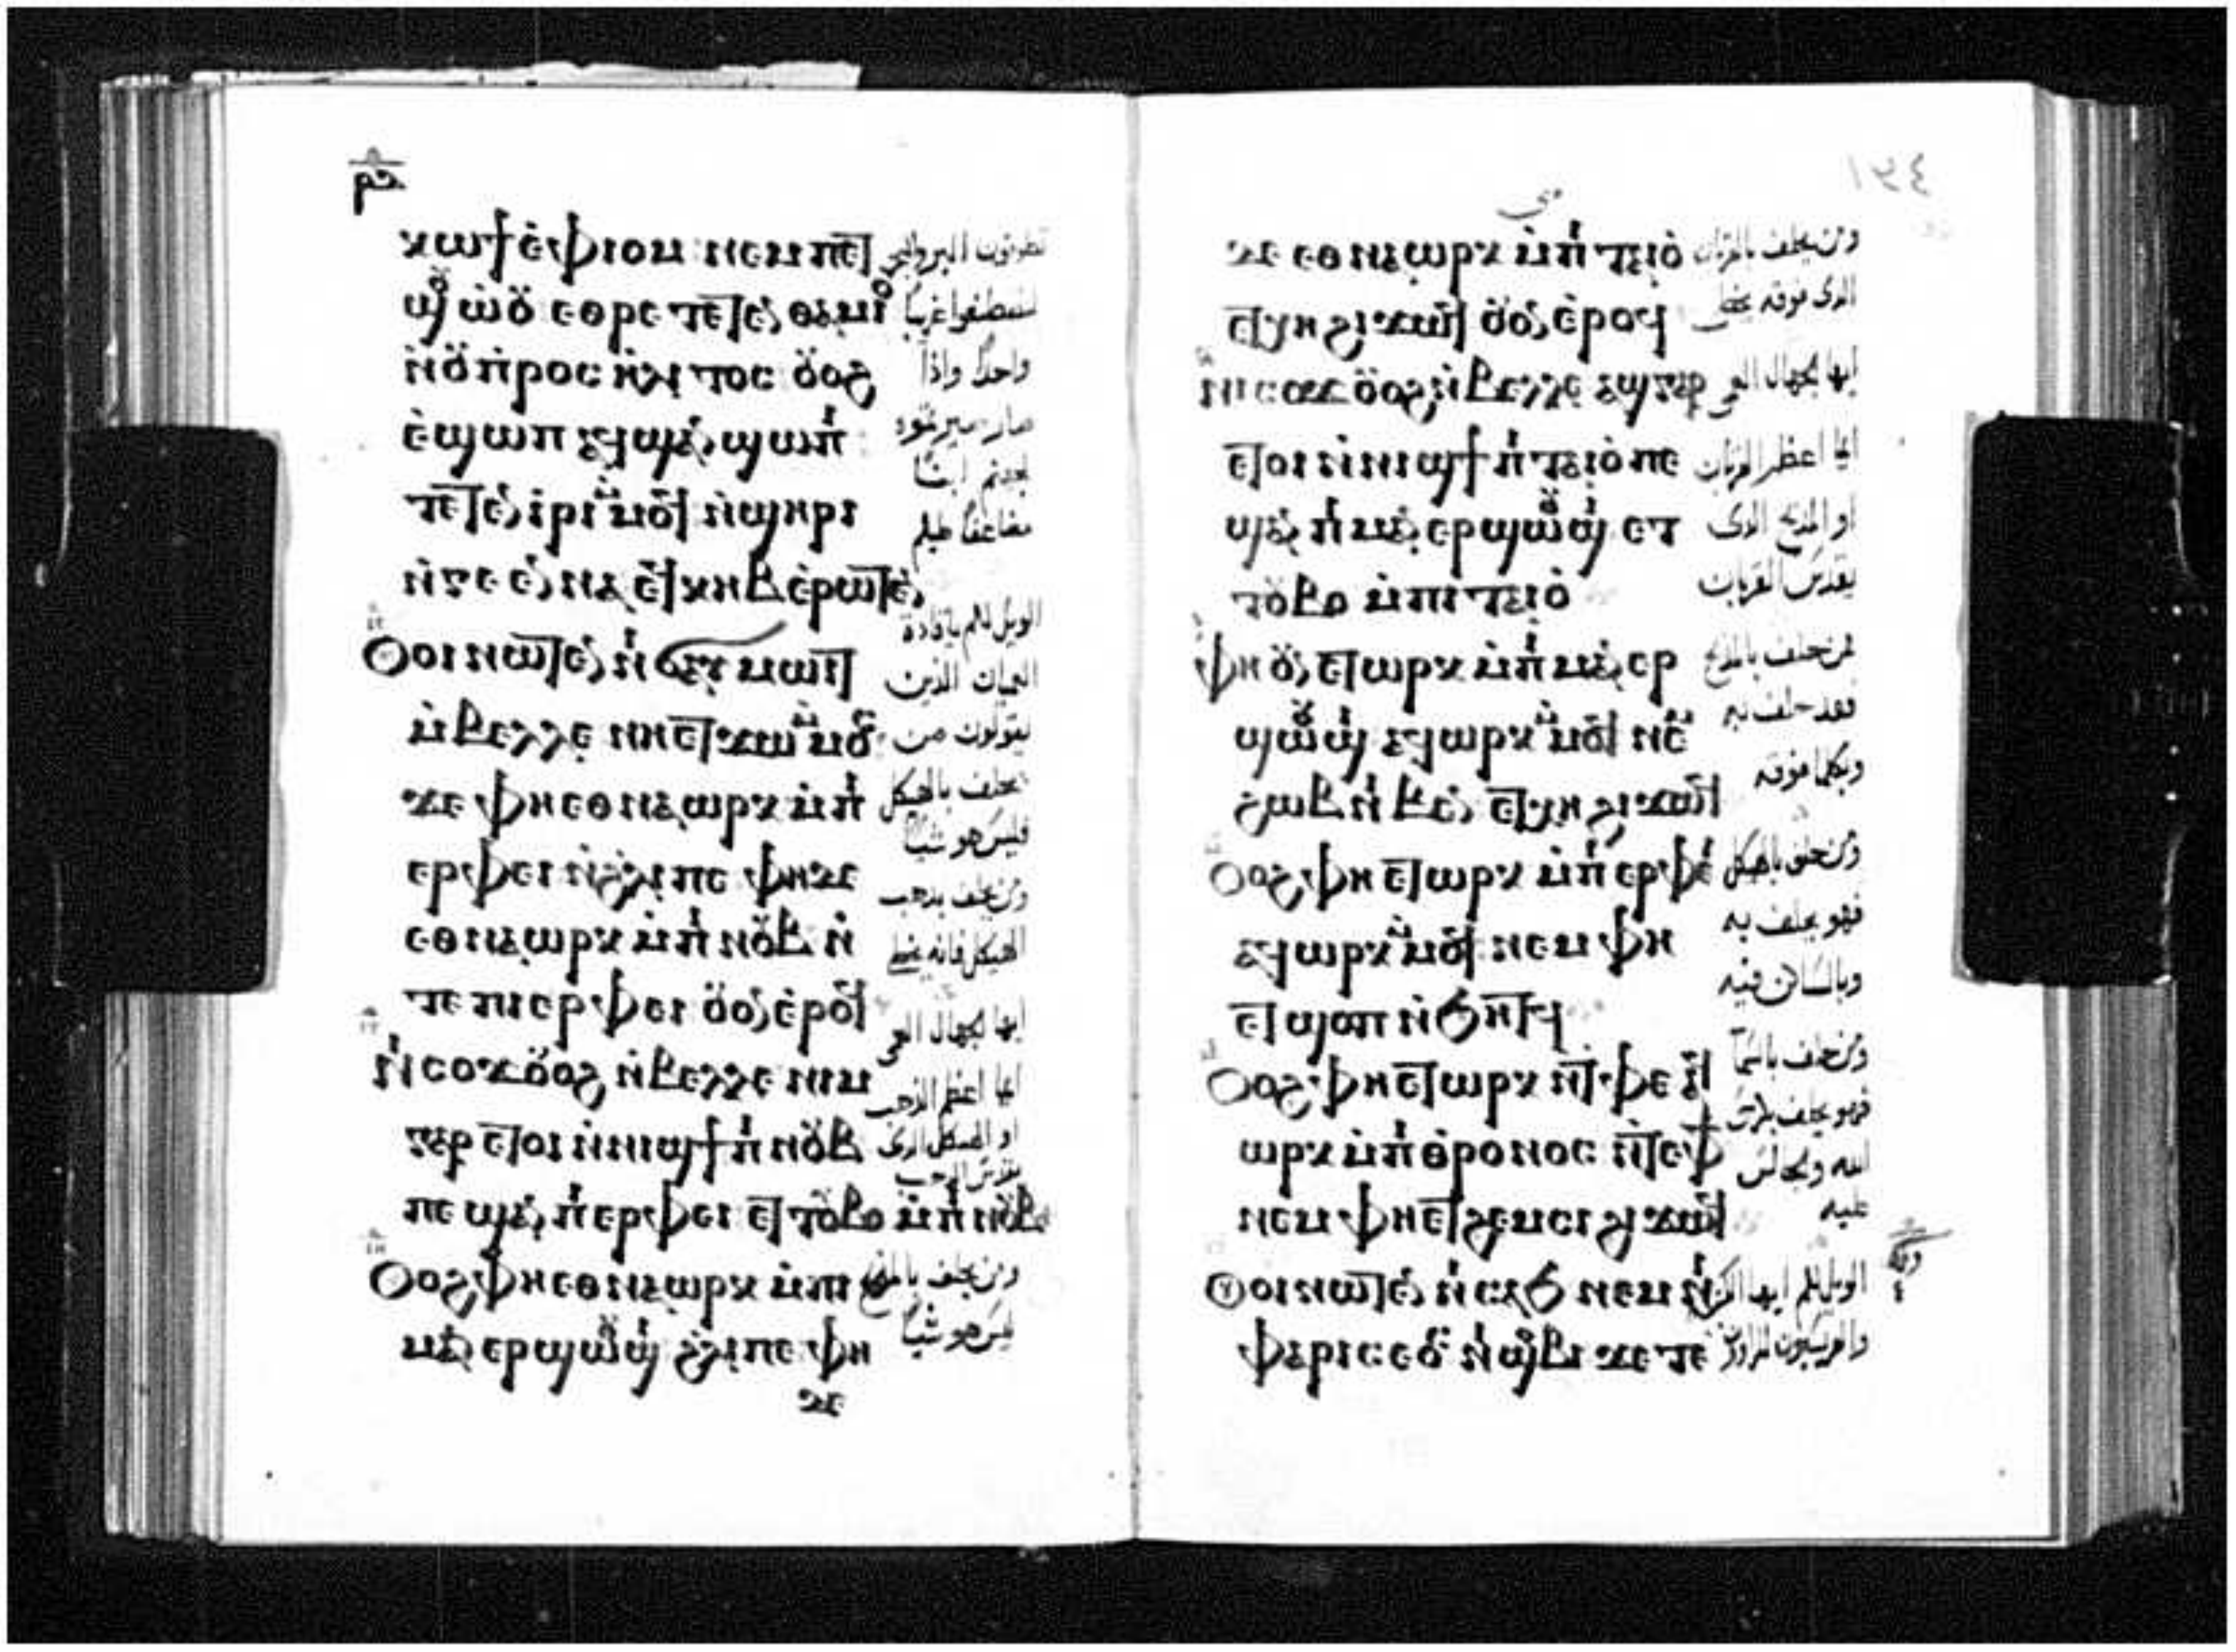 ⲣⲙ
ⲕⲱϯ ⲉ̀ⲫⲓⲟⲙ ⲛⲉⲙ ⲡⲉⲧ
ϣⲟⲩⲱ̀ⲟⲩ ⲉⲑⲣⲉⲧⲉⲧⲉⲛⲑⲁⲙⲓⲟ
ⲛ̀ⲟⲩⲡ̀ⲣⲟⲥⲏⲗⲩⲧⲟⲥ ⲟⲩⲟϩ
ⲉ̀ϣⲱⲡ ⲁϥϣⲁⲛϣⲱⲡⲓ
ⲧⲉⲧⲉⲛⲓⲣⲓ ⲙ̀ⲙⲟϥ ⲛ̀ϣⲏⲣⲓ
ⲛ̀ⲅⲉⲉⲛⲛⲁ ⲉϥⲕⲏⲃ ⲉ̀ⲣⲱⲧⲉⲛ
ⲟⲩⲟⲓ ⲛⲱⲧⲉⲛ ⲛⲓϭⲁⲩⲙⲱⲓⲧ
ⲙ̀ⲃⲉⲗⲗⲉ ⲛⲏⲉⲧϫⲱ ⲙ̀ⲙⲟⲥ
ϫⲉ ⲫⲏⲉⲑⲛⲁⲱⲣⲕ ⲙ̀ⲡⲓ
ⲉⲣⲫⲉⲓ ⲛ̀ϩⲗⲓ ⲡⲉ ⲫⲏⲇⲉ
ⲉⲑⲛⲁⲱⲣⲕ ⲙ̀ⲡⲓⲛⲟⲩⲃ ⲛ̀
ⲧⲉ ⲡⲓⲉⲣⲫⲉⲓ ⲟⲩⲟⲛ ⲉ̀ⲣⲟϥ
ⲛⲓⲥⲟϫ ⲟⲩⲟϩ ⲙ̀ⲃⲉⲗⲗⲉ ⲛⲓⲙ
ⲅⲁⲣ ⲉⲧⲟⲓ ⲛ̀ⲛⲓϣϯ ⲡⲓⲛⲟⲩⲃ
ⲡⲉ ϣⲁⲛ ⲡⲓⲉⲣⲫⲉⲓ ⲉⲧⲧⲟⲩⲃⲟ ⲙ̀ⲡⲓⲛⲟⲩⲃ
ⲟⲩⲟϩ ⲫⲏⲉⲑⲛⲁⲱⲣⲕ ⲙ̀ⲡⲓ
ⲙⲁⲛⲉⲣϣⲱⲟⲩϣⲓ ϩⲗⲓ ⲡⲉ ⲫⲏ
ϫⲉ
تطوفون البر والبحر
لتصطفوا غريبًا
واحدًا واذا
صار صيرتموه
لجهنم ابنًا
مضاعفًا عليكم
الويل لكم يا قادة
العميان الذين
يقولون من
يحلف بالهيكل
فليس هو شيا
ومن يحلف بذهب
الهيكل فانه يخطي
ايها الجهال العمي
ايما اعظم الذهب
او الهيكل الذي
يقدس الذهب
ومن يحلف بالمذبح
ليس هو شيا
ⲇⲉ ⲉⲑⲛⲁⲱⲣⲕ ⲙ̀ⲡⲓⲧⲁⲓⲟ̀
ⲉⲧⲭⲏ ϩⲓϫⲱϥ ⲟⲩⲟⲛ ⲉ̀ⲣⲟϥ
ⲛⲓⲥⲟϫ ⲟⲩⲟϩ ⲙ̀ⲃⲉⲗⲗⲉ ⲁϣ ⲅⲁⲣ
ⲉⲧⲟⲓ ⲛ̀ⲛⲓϣϯ ⲡⲓⲧⲁⲓⲟ̀ ⲡⲉ
ϣⲁⲛ ⲡⲓⲙⲁⲛⲉⲣϣⲱⲟⲩϣⲓ ⲉⲧ
ⲧⲟⲩⲃⲟ ⲙ̀ⲡⲓⲧⲁⲓⲟ̀
ⲫⲏ ⲟⲩⲛ ⲉⲧⲱⲣⲕ ⲙ̀ⲡⲓⲙⲁⲛⲉⲣ
ϣⲱⲟⲩϣⲓ ⲁϥⲱⲣⲕ ⲙ̀ⲙⲟϥ ⲛⲉⲙ
ϩⲱⲃ ⲛⲓⲃⲉⲛ ⲉⲧⲭⲏ ϩⲓϫⲱϥ
ⲟⲩⲟϩ ⲫⲏⲉⲧⲱⲣⲕ ⲙ̀ⲡⲓⲉⲣⲫⲉⲓ
ⲁϥⲱⲣⲕ ⲙ̀ⲙⲟϥ ⲛⲉⲙ ⲫⲏ
ⲉⲧϣⲟⲡ ⲛ̀ϧⲏⲧϥ
ⲟⲩⲟϩ ⲫⲏⲉⲧⲱⲣⲕ ⲛ̀ⲧⲫⲉ ⲁϥ
ⲱⲣⲕ ⲙ̀ⲡⲓⲑⲣⲟⲛⲟⲥ ⲛ̀ⲧⲉ ⲫϯ
ⲛⲉⲙ ⲫⲏⲉⲧϩⲉⲙⲥⲓ ϩⲓϫⲱϥ
ⲟⲩⲟⲓ ⲛⲱⲧⲉⲛ ⲛⲓⲥⲁϧ ⲛⲉⲙ ⲛⲓ
ⲫⲁⲣⲓⲥⲉⲟⲥ ⲛⲓϣⲟⲃⲓ ϫⲉ ⲧⲉ
ومن يحلف بالقربان
الذي فوقه يخطي
ايها الجهال العمي
ايما اعظم القربان
او المذبح الذي
يقدس القربان
فمن حلف بالمذبح
فقد حلف به
وبكلما فوقه
ومن حلف بالهيكل
فهو يحلف به
وبالساكن فيه
ومن حلف بالسما
فهو يحلف بكرسي
الله وبالجالس
عليه
الويل لكم ايها الكتبة
والفريسيون المراون